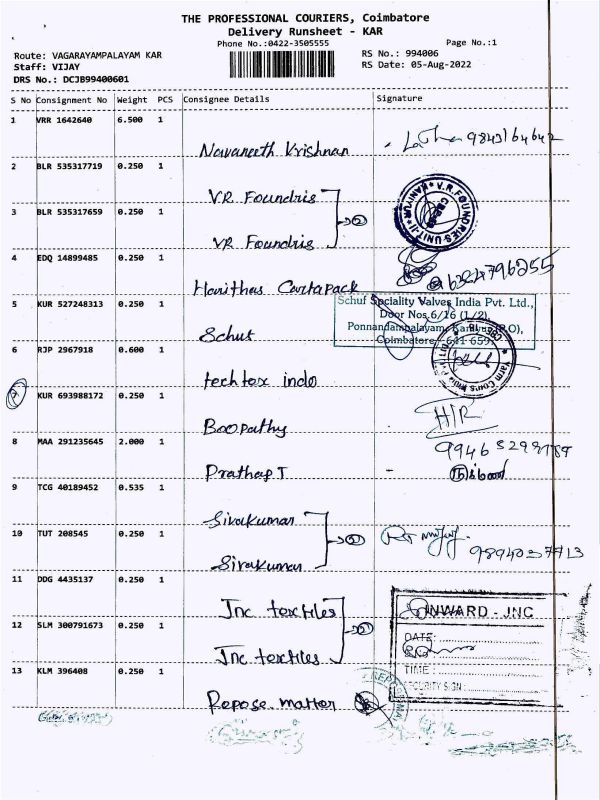 THE PROFESSIONAL COURIERS, Coimbatore
Delivery Runsheet - KAR
Phone No.:0422-3505555
Page No.:1
Route: VAGARAYAMPALAYAM KAR
RS No.: 994006
Staff: VIJAY
RS Date: 05-Aug-2022
DRS No.: DCJB99400601
S No Consignment No Weight PCS Consignee Details Signature
1 VRR 1642640 6.500 1
Navaneeth Krishnan
2 BLR 535317719 0.250 1
VR Foundris
3 BLR 535317659 0.250 1
VR Foundris
V.R.FOUNDRIES-UNIT-II KANIYUR
4 EDQ 14899485 0.250 1
Harithas Cartapack
5 KUR 527248313 0.250 1
Schuf
Schuf Speciality Valves India Pvt. Ltd.,
Door Nos. 6/16 (1/2)
Ponnandampalayam, Kaniyur (P.O),
Coimbatore - 641 659
6 RJP 2967918 0.600 1
tech tex indo
7 KUR 693988172 0.250 1
Boopathy
H/R
8 MAA 291235645 2.000 1
Prathap T
9 TCG 40189452 0.535 1
Sivakumar
10 TUT 208545 0.250 1
Sivakumar
9894037713
11 DDG 4435137 0.250 1
Jnc textiles
INWARD - JNC
DATE:
TIME :
SECURITY SIGN :
12 SLM 300791673 0.250 1
Jnc textiles
13 KLM 396408 0.250 1
Repose matter